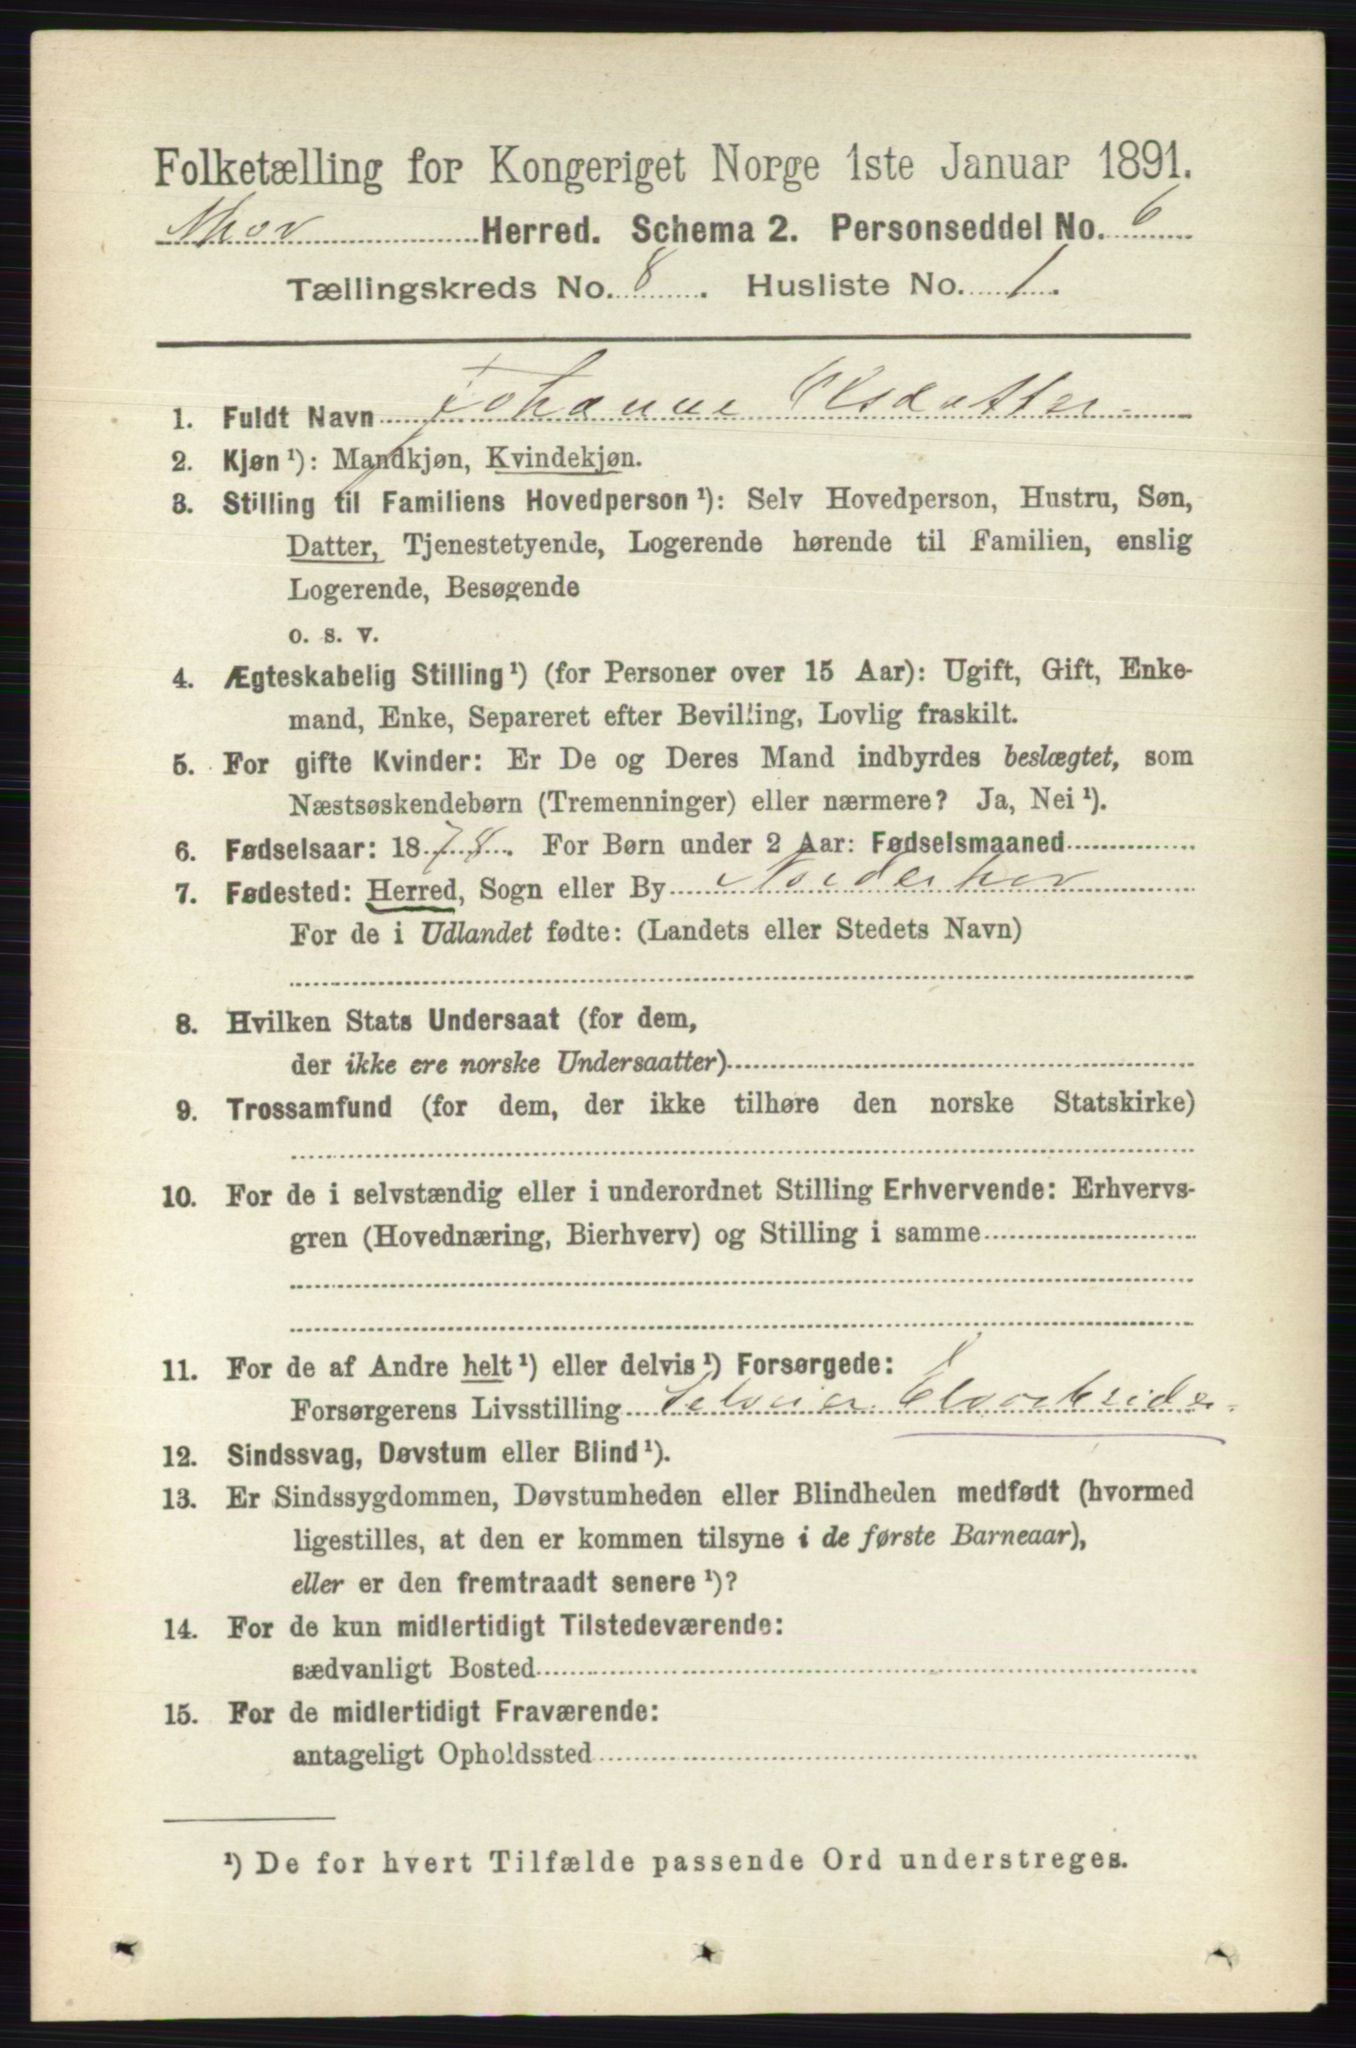 Folketælling for Kongeriget Norge 1ste Januar 1891.
Herred. Schema 2. Personseddel No. 6
Tællingskreds No. 8. Husliste No. 1.
1. Fuldt Navn Johanne Olsdatter
2. Kjøn¹): Mandkjøn, Kvindekjøn.
3. Stilling til Familiens Hovedperson¹): Selv Hovedperson, Hustru, Søn,
Datter, Tjenestetyende, Logerende hørende til Familien, enslig
Logerende, Besøgende
o. s. v.
4. Ægteskabelig Stilling¹) (for Personer over 15 Aar): Ugift, Gift, Enke-
mand, Enke, Separeret efter Bevilling, Lovlig fraskilt.
5. For gifte Kvinder: Er De og Deres Mand indbyrdes beslægtet, som
Næstsøskendebørn (Tremenninger) eller nærmere? Ja, Nei¹).
6. Fødselsaar: 1878. For Børn under 2 Aar: Fødselsmaaned
7. Fødested: Herred, Sogn eller By Norderhov
For de i Udlandet fødte: (Landets eller Stedets Navn)
8. Hvilken Stats Undersaat (for dem,
der ikke ere norske Undersaatter)
9. Trossamfund (for dem, der ikke tilhøre den norske Statskirke)
10. For de i selvstændig eller i underordnet Stilling Erhvervende: Erhvervs-
gren (Hovednæring, Bierhverv) og Stilling i samme
11. For de af Andre helt¹) eller delvis¹) Forsørgede:
Forsørgerens Livsstilling Selveier Gaardbruder
12. Sindssvag, Døvstum eller Blind¹).
13. Er Sindssygdommen, Døvstumheden eller Blindheden medfødt (hvormed
ligestilles, at den er kommen tilsyne i de første Barneaar),
eller er den fremtraadt senere¹)?
14. For de kun midlertidigt Tilstedeværende:
sædvanligt Bosted
15. For de midlertidigt Fraværende:
antageligt Opholdssted
¹) De for hvert Tilfælde passende Ord understreges.